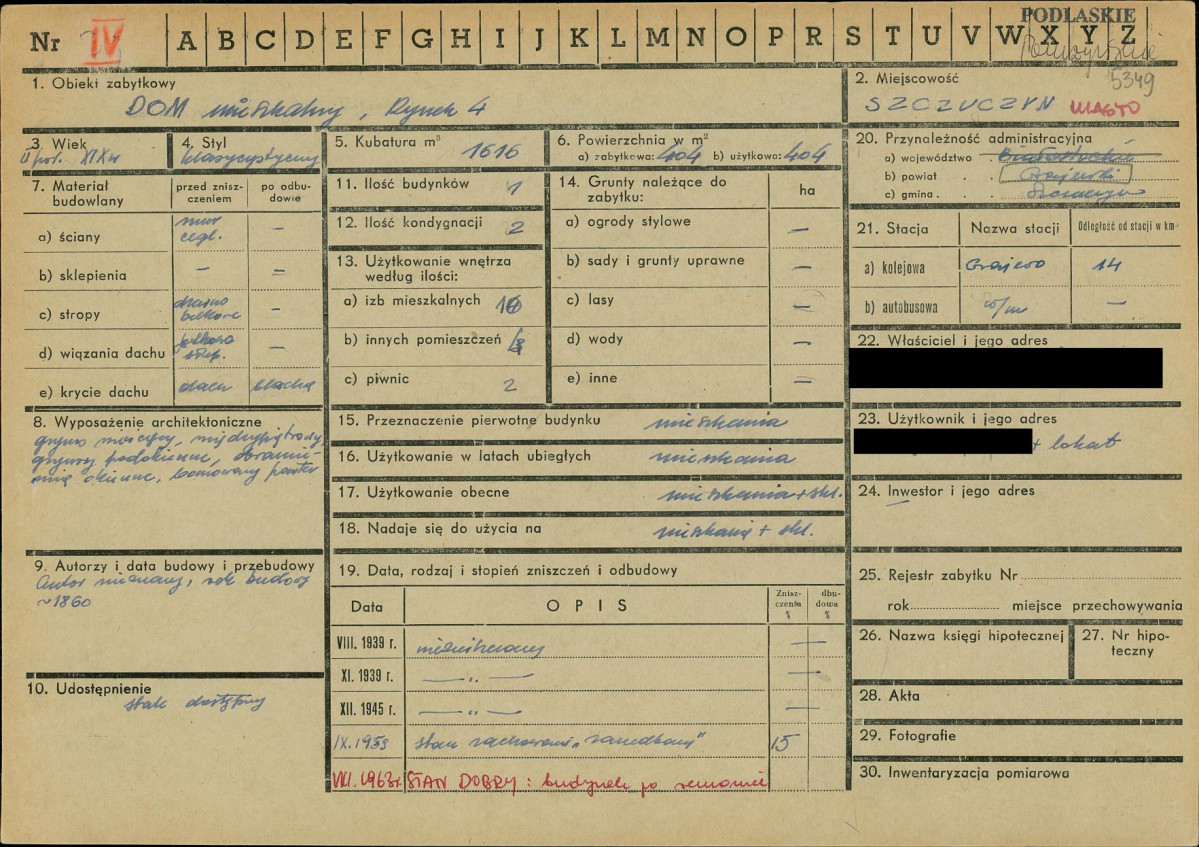 Nr IV A B C D E F G H I J K L M N O P R S T U V W X Y Z
PODLASKIE
5349
1. Obiekt zabytkowy
DOM mieszkalny, Rynek 4
2. Miejscowość
SZCZUCZYN MIASTO
3. Wiek
II poł. XIX w
4. Styl
klasycystyczny
5. Kubatura m³ 1616
6. Powierzchnia w m²
a) zabytkowa: 404 b) użytkowa: 404
7. Materiał budowlany
przed zniszczeniem
po odbudowie
a) ściany mur cegl. —
b) sklepienia — —
c) stropy drewno belkowe —
d) wiązania dachu —
e) krycie dachu blachą
8. Wyposażenie architektoniczne
gzyms wieńczący, międzypiętrowy
gzymsy podokienne, obramie-
nia okienne, boniowany parter
9. Autorzy i data budowy i przebudowy
Autor nieznany, rok budowy
~1860
10. Udostępnienie
stale dostępny
11. Ilość budynków 1
12. Ilość kondygnacji 2
13. Użytkowanie wnętrza według ilości:
a) izb mieszkalnych
b) innych pomieszczeń
c) piwnic 2
14. Grunty należące do zabytku:
ha
a) ogrody stylowe —
b) sady i grunty uprawne —
c) lasy —
d) wody —
e) inne —
15. Przeznaczenie pierwotne budynku mieszkania
16. Użytkowanie w latach ubiegłych mieszkania
17. Użytkowanie obecne mieszkania + skl.
18. Nadaje się do użycia na mieszkania + skl.
19. Data, rodzaj i stopień zniszczeń i odbudowy
Data OPIS Zniszczenia % dbudowa %
VIII. 1939 r. niezniszczony —
XI. 1939 r. — „ — —
XII. 1945 r. — „ — —
IX. 1959 stan zachowania „zaniedbany" 15
VIII. 1963 r. STAN DOBRY: budynek po remoncie
20. Przynależność administracyjna
a) województwo Białostockie
b) powiat Grajewski
c) gmina Szczuczyn
21. Stacja Nazwa stacji Odległość od stacji w km
a) kolejowa Grajewo 14
b) autobusowa w/m —
22. Właściciel i jego adres
23. Użytkownik i jego adres
+ lokat
24. Inwestor i jego adres
—
25. Rejestr zabytku Nr
rok miejsce przechowywania
26. Nazwa księgi hipotecznej
27. Nr hipoteczny
28. Akta
29. Fotografie
30. Inwentaryzacja pomiarowa